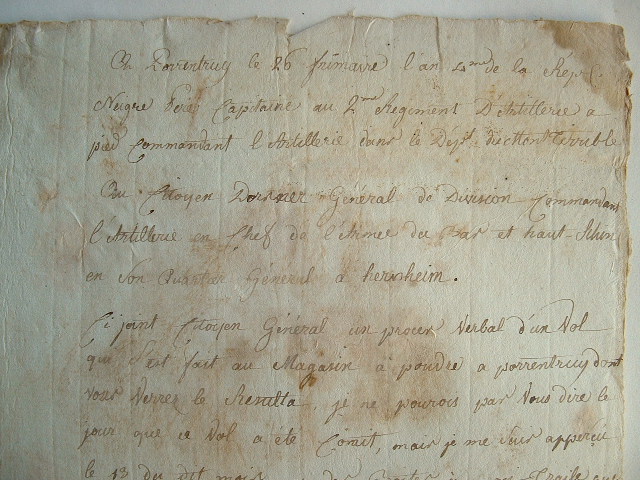 A Porrentruy le 26 frimaire l'an 4me de la Répu.
Neigre Pere Capitaine au 2me Regiment D'Artillerie a
pied Commandant l'Artillerie dans le Dept. du Mont Terrible
Au Citoyen Dorsner Général de Division Commandant
l'Artillerie en Chef de l'Armée du Bas et haut-Rhin
en son Quartier Général a hernsheim.
Ci joint Citoyen Général un proces Verbal d'un Vol
qui s'est fait au Magasin à poudre a porrentruy dont
vous Verrez le Resulta, je ne pourois pas Vous dire le
jour que ce Vol a été Comit, mais je me suis apperçu
le 13 du dit mois